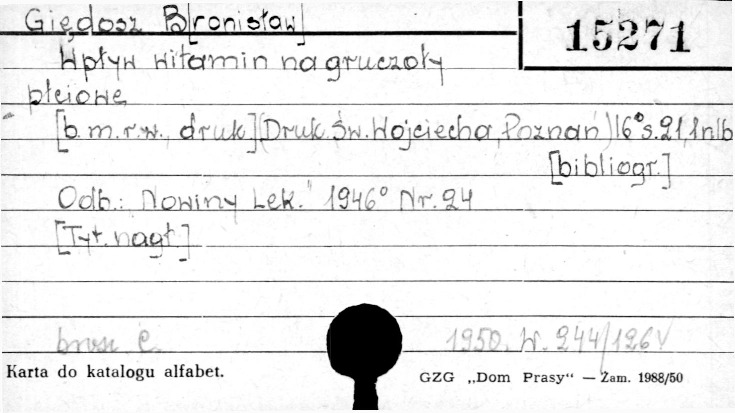 Giędosz B[ronisław]
15271
Wpływ witamin na gruczoły
płciowe
[b.m.r.w., druk](Druk.Św.Wojciecha,Poznań)16°s.21,1nlb
[bibliogr.]
Odb.: "Nowiny Lek." 1946° Nr.24
[Tyt. nagł.]
brosz. C.
1950. W. 244/126V
Karta do katalogu alfabet.
GZG „Dom Prasy“ — Zam. 1988/50